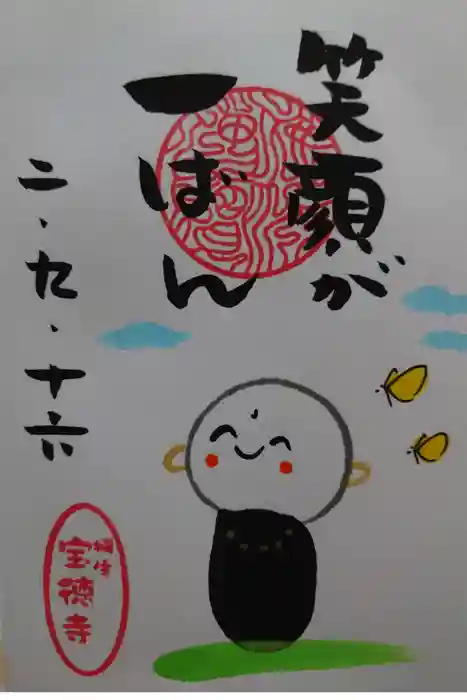 笑顔が
一ばん
二・九・十六
桐生
宝徳寺